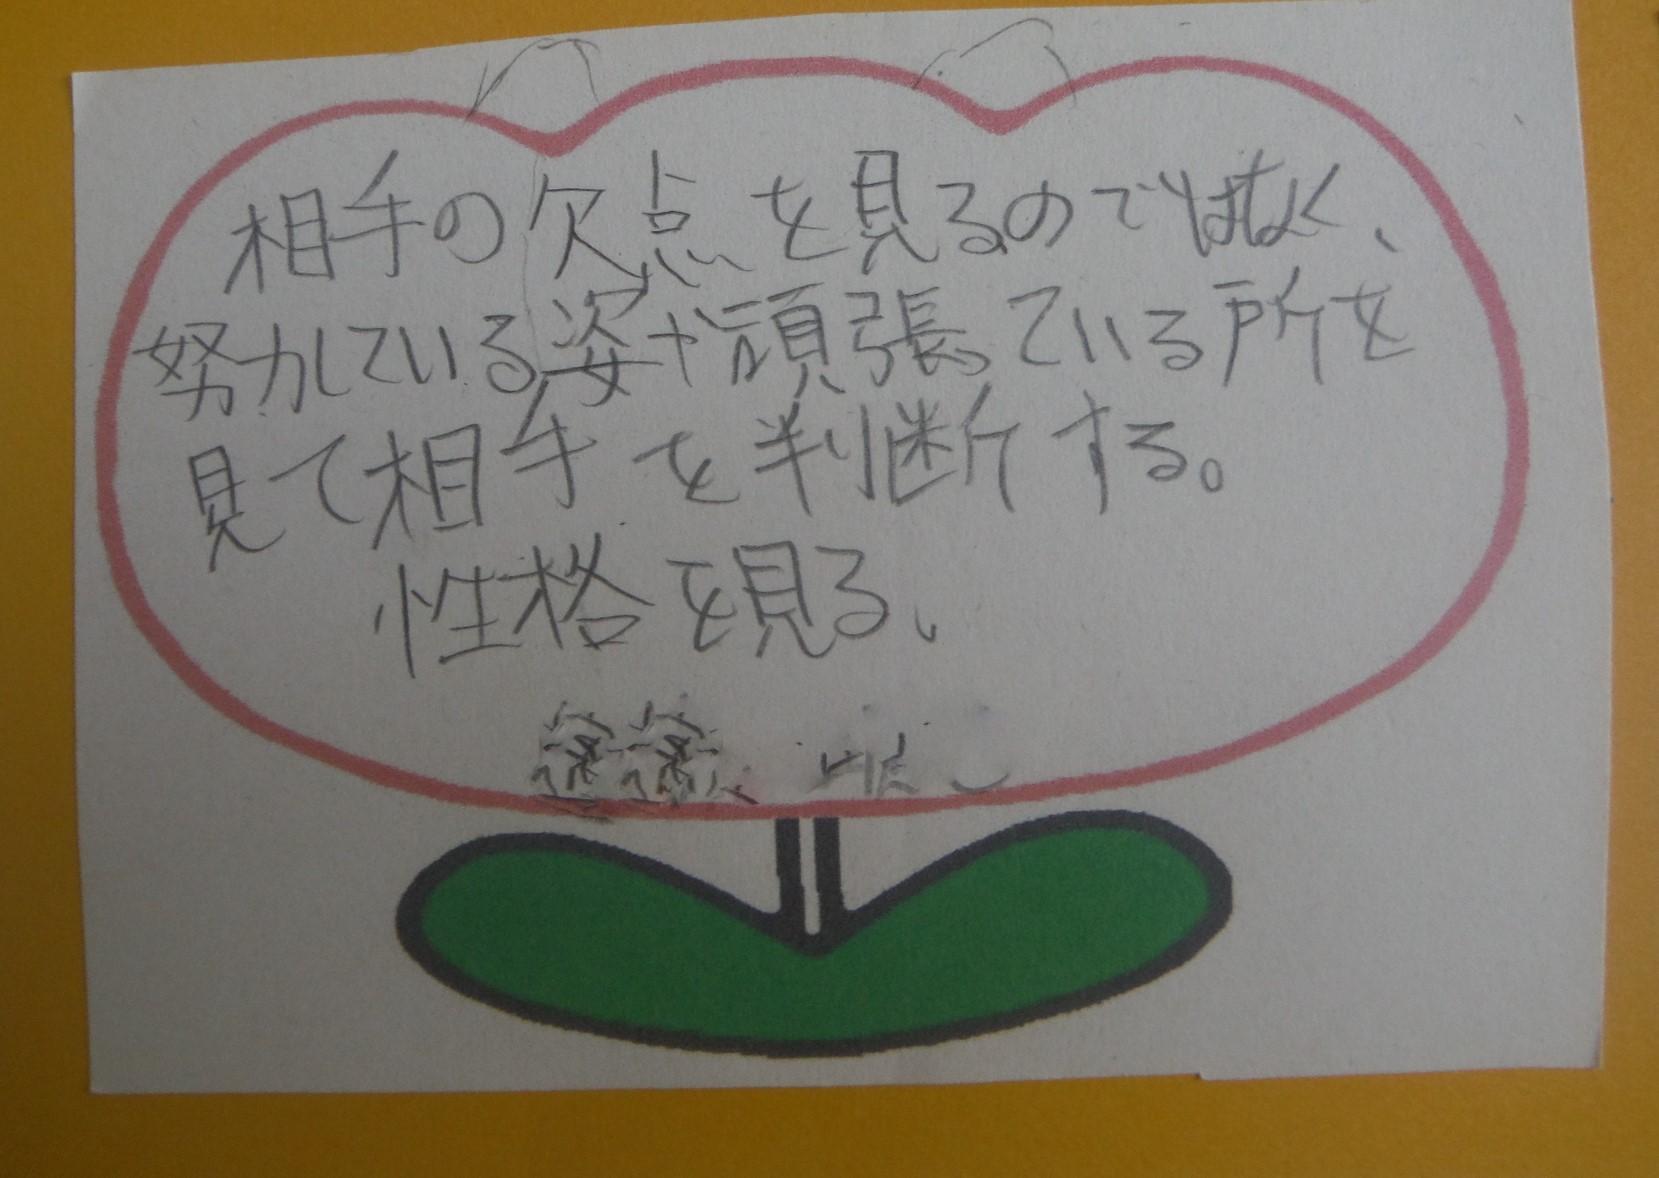 相手の欠点を見るのではなく、
努力している姿や頑張っている所を
見て相手を判断する。
性格を見る、